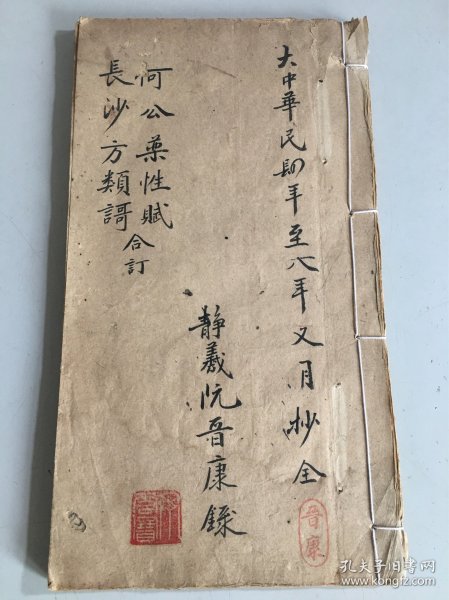 大中華民國肆年至八年又月抄全
靜羲阮晉康錄
何公藥性賦
長沙方類謌 合訂
晉康
孔夫子旧书网
www.kongfz.com